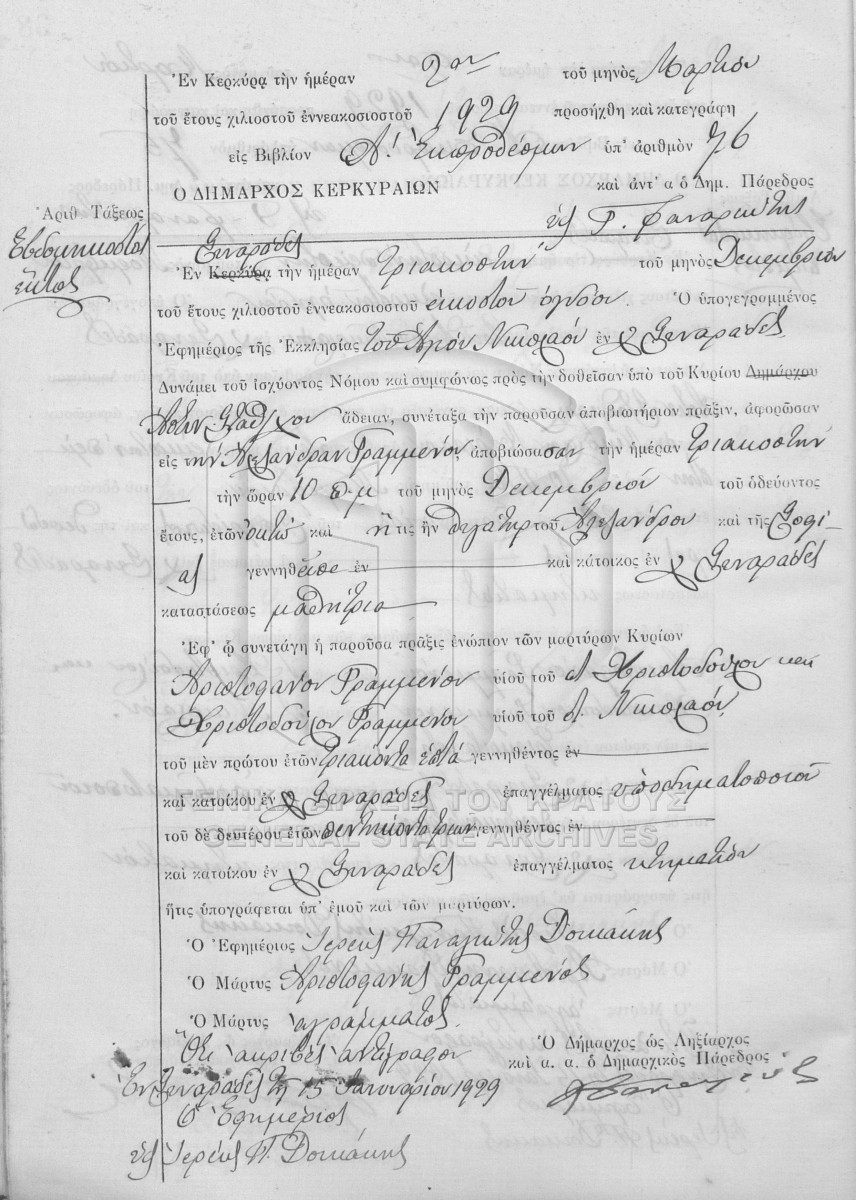 Ἐν Κερκύρᾳ τὴν ἡμέραν 2αν τοῦ μηνὸς Μαρτίου
τοῦ ἔτους χιλιοστοῦ ἐννεακοσιοστοῦ 1929 προσήχθη καὶ κατεγράφη
εἰς Βιβλίον Α΄. Ἐκπροθέσμων ὑπ' ἀριθμὸν 76
Ο ΔΗΜΑΡΧΟΣ ΚΕΡΚΥΡΑΙΩΝ καὶ ἀντ' α ὁ Δημ. Πάρεδρος
Γ. Φαναριώτης
Ἀριθ Τάξεως
Ἑβδομηκοστὸς
ἕκτος
Σιναράδες
Ἐν Κερκύρᾳ τὴν ἡμέραν τριακοστὴν τοῦ μηνὸς Δεκεμβρίου
τοῦ ἔτους χιλιοστοῦ ἐννεακοσιοστοῦ εἰκοστοῦ ὀγδόου. Ὁ ὑπογεγραμμένος
Ἐφημέριος τῆς Ἐκκλησίας τοῦ Ἁγίου Νικολάου ἐν Σιναράδες
Δυνάμει τοῦ ἰσχύοντος Νόμου καὶ συμφώνως πρὸς τὴν δοθεῖσαν ὑπὸ τοῦ Κυρίου Δημάρχου
Ἀστυν Σταθμχου ἄδειαν, συνέταξα τὴν παροῦσαν ἀποβιωτήριον πρᾶξιν, ἀφορῶσαν
εἰς τὴν Ἀλεξάνδραν Γραμμένου, ἀποβιώσασαν τὴν ἡμέραν τριακοστὴν
τὴν ὥραν 10 π.μ τοῦ μηνὸς Δεκεμβρίου τοῦ ὁδεύοντος
ἔτους, ἐτῶν ὀκτὼ καὶ ἥτις ἦν θυγάτηρ τοῦ Ἀλεξάνδρου καὶ τῆς Σοφί
ας γεννηθεῖσα ἐν καὶ κάτοικος ἐν Σιναράδες
καταστάσεως μαθήτρια
Ἐφ' ᾧ συνετάγη ἡ παροῦσα πρᾶξις ἐνώπιον τῶν μαρτύρων Κυρίων
Ἀριστοφάνου Γραμμένου υἱοῦ τοῦ Χριστοδούλου καὶ
Χριστοδούλου Γραμμένου υἱοῦ τοῦ Νικολάου
τοῦ μὲν πρώτου ἐτῶν τριάκοντα ἑπτὰ γεννηθέντος ἐν
καὶ κατοίκου ἐν Σιναράδες ἐπαγγέλματος ὑποδηματοποιοῦ
ΓΕΝΙΚΑ ΑΡΧΕΙΑ ΤΟΥ ΚΡΑΤΟΥΣ
τοῦ δὲ δευτέρου ἐτῶν πεντήκοντα τριῶν γεννηθέντος ἐν
GENERAL STATE ARCHIVES
καὶ κατοίκου ἐν Σιναράδες ἐπαγγέλματος κτηματίου
ἥτις ὑπογράφεται ὑπ' ἐμοῦ καὶ τῶν μαρτύρων.
Ὁ Ἐφημέριος Ἱερεὺς Παναγιώτης Δουκάκης
Ὁ Μάρτυς Ἀριστοφάνης Γραμμένος
Ὁ Μάρτυς ἀγράμματος
Ὅτι ἀκριβὲς ἀντίγραφον
Ἐν Σιναράδες τῇ 15 Ἰανουαρίου 1929
Ὁ Ἐφημέριος
Ἱερεὺς Π. Δουκάκης
Ὁ Δήμαρχος ὡς Ληξίαρχος
καὶ α. α. ὁ Δημαρχικὸς Πάρεδρος